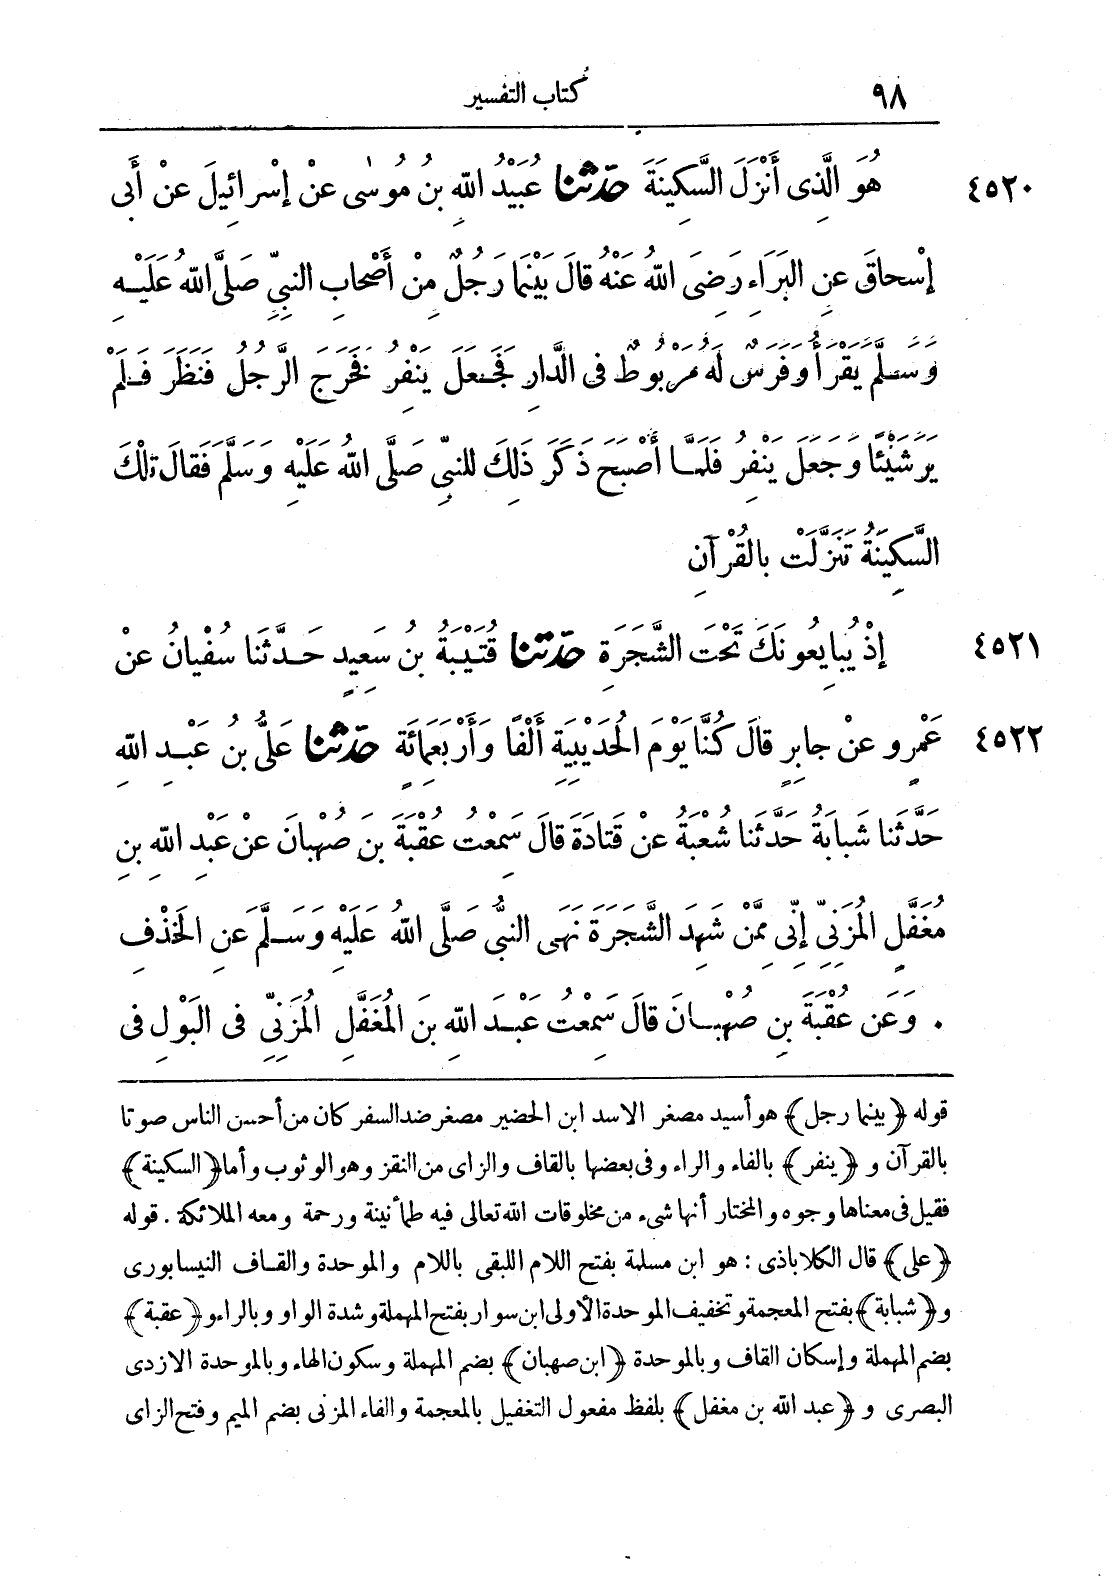 ٩٨ كتاب التفسير
٤٥٢٠ هُوَ الَّذِى أَنْزَلَ السَّكِينَةَ حدّثنا عُبَيْدُ اللهِ بنُ مُوسٰى عنْ إسْرائيلَ عنْ أَبى
إسْحاقَ عنِ البَرَاءِ رَضِىَ اللهُ عَنْهُ قالَ بَيْنَما رَجُلٌ مِنْ أَصْحابِ النبِىِّ صَلَّى اللهُ عَلَيْهِ
وَسَلَّمَ يَقْرَأُ وفَرَسٌ لَهُ مَرْبُوطٌ فى الدَّارِ فَجَعَلَ يَنْفِرُ فَخَرَجَ الرَّجُلُ فَنَظَرَ فَلَمْ
يَرَ شَيْئًا وَجَعَلَ يَنْفِرُ فَلَمَّا أَصْبَحَ ذَكَرَ ذَلِكَ للنبىِّ صَلَّى اللهُ عَلَيْهِ وَسَلَّمَ فَقالَ تِلْكَ
السَّكِينَةُ تَنَزَّلَتْ بالقُرْآنِ
٤٥٢١ إذْ يُبايِعُونَكَ تَحْتَ الشَّجَرَةِ حدّثنا قُتَيْبَةُ بنُ سَعِيدٍ حَدَّثَنا سُفْيانُ عنْ
٤٥٢٢ عَمْرٍو عنْ جابِرٍ قالَ كُنَّا يَوْمَ الحُدَيْبِيَةِ أَلْفًا وَأَرْبَعَمائَةٍ حدّثنا عَلىُّ بنُ عَبْدِ اللهِ
حَدَّثَنا شَبابَةُ حَدَّثَنا شُعْبَةُ عنْ قَتادَةَ قالَ سَمِعْتُ عُقْبَةَ بنَ صُهْبانَ عنْ عَبْدِ اللهِ بنِ
مُغَفَّلٍ المُزَنِىِّ إنِّى مِمَّنْ شَهِدَ الشَّجَرَةَ نَهَى النبىُّ صَلَّى اللهُ عَلَيْهِ وَسَلَّمَ عَنِ الخَذْفِ
. وَعَن عُقْبَةَ بنِ صُهْبانَ قالَ سَمِعْتُ عَبْدَ اللهِ بنَ المُغَفَّلِ المُزَنِىِّ فى البَوْلِ فى
قوله ﴿بينما رجل﴾ هو أسيد مصغر الاسد ابن الحضير مصغر ضد السفر كان من أحسن الناس صوتا
بالقرآن و ﴿ينفر﴾ بالفاء والراء وفى بعضها بالقاف والزاى من النقز وهو الوثوب وأما ﴿السكينة﴾
فقيل فى معناها وجوه والمختار أنها شىء من مخلوقات الله تعالى فيه طمأنينة ورحمة ومعه الملائكة . قوله
﴿على﴾ قال الكلاباذى : هو ابن مسلمة بفتح اللام اللبقى باللام والموحدة والقاف النيسابورى
و﴿شبابة﴾ بفتح المعجمة وتخفيف الموحدة الأولى ابن سوار بفتح المهملة وشدة الواو وبالراء و﴿عقبة﴾
بضم المهملة وإسكان القاف وبالموحدة ﴿ابن صهبان﴾ بضم المهملة وسكون الهاء وبالموحدة الازدى
البصرى و ﴿عبد الله بن مغفل﴾ بلفظ مفعول التغفيل بالمعجمة والفاء المزنى بضم الميم وفتح الزاى